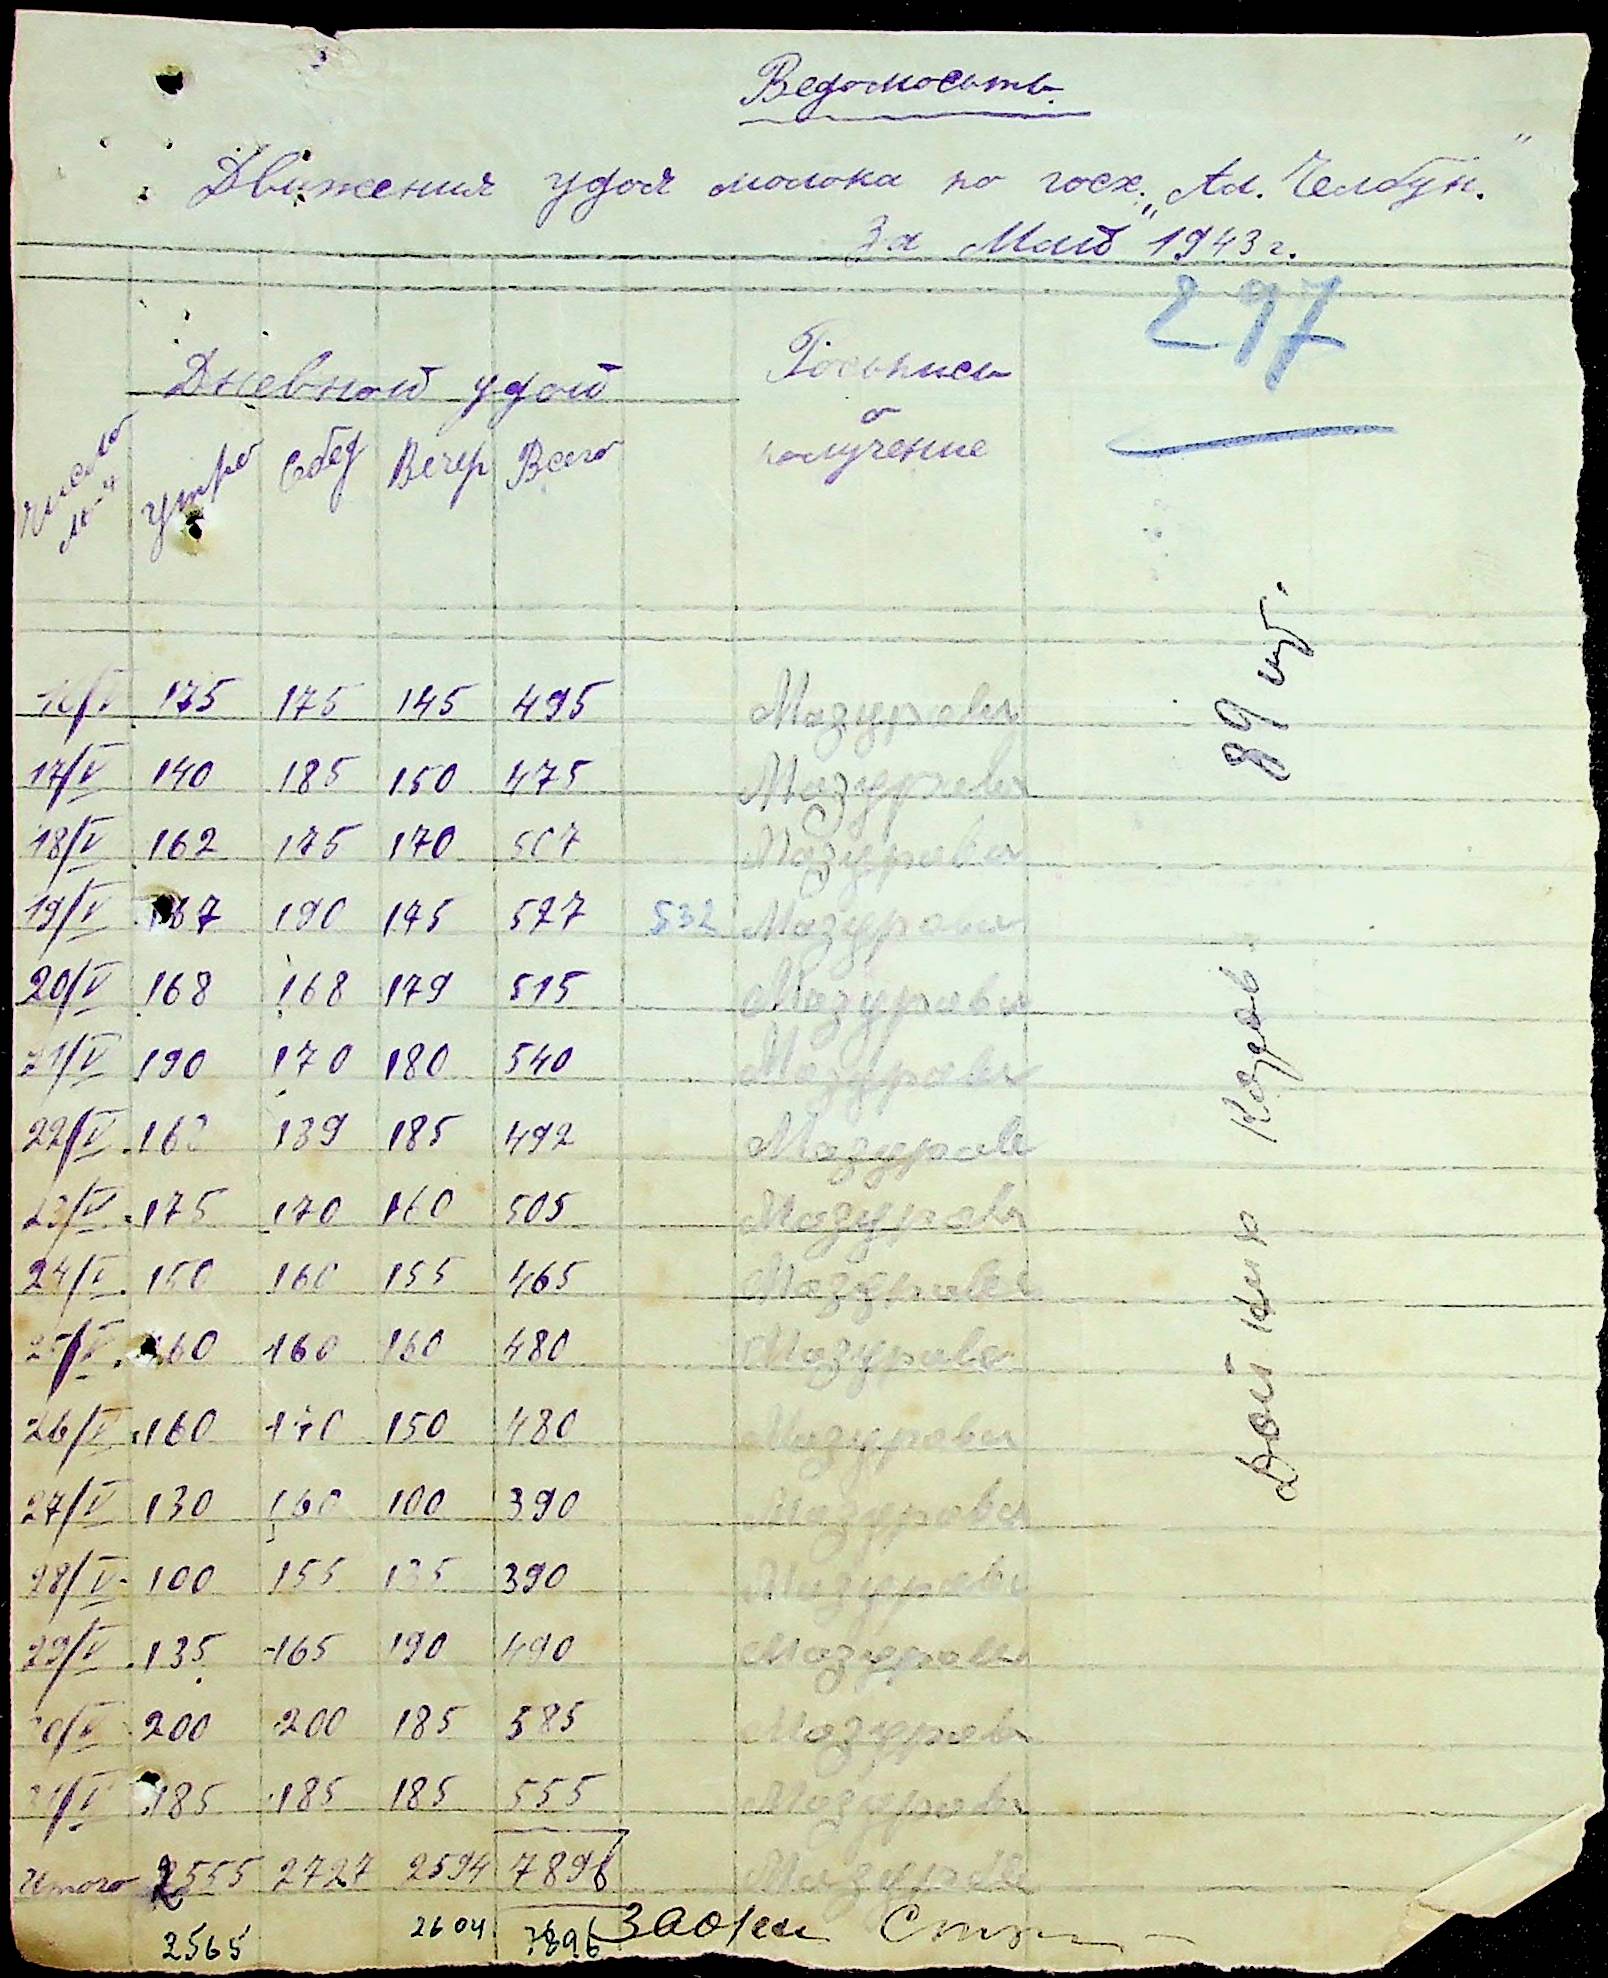 Ведомость.
Движения удоя молока по госх. „Ал. Челбун."
За Май 1943 г.
297
Дневной удой
Роспись о получение
Число м-ц утро Обед Вечер Всего
16/V 175 175 145 495 Мазурова
17/V 140 185 150 475 Мазурова
18/V 162 175 170 507 Мазурова
19/V 167 190 175 527 532 Мазурова
20/V 168 168 179 515 Мазурова
21/V 190 170 180 540 Мазурова
22/V 168 139 185 492 Мазурова
23/V 175 170 160 505 Мазурова
24/V 150 160 155 465 Мазурова
25/V 160 160 160 480 Мазурова
26/V 160 170 150 480 Мазурова
27/V 130 160 100 390 Мазурова
28/V 100 155 135 390 Мазурова
29/V 135 165 190 490 Мазурова
30/V 200 200 185 585 Мазурова
31/V 185 185 185 555 Мазурова
Итого 2555 2727 2594 7896 Мазурова
2565 2604 7896
Дойных Коров - 89 шт.